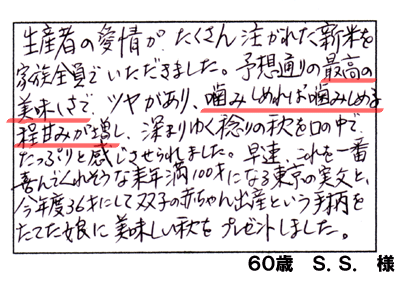 生産者の愛情が、たくさん注がれた新米を
家族全員でいただきました。予想通りの最高の
美味しさで、ツヤがあり、噛みしめれば噛みしめる
程甘みが増し、深まりゆく稔りの秋を口の中で
たっぷりと感じさせられました。早速、これを一番
喜んでくれそうな来年満100才になる東京の実父と、
今年度36才にして双子の赤ちゃん出産という手柄を
たてた娘に美味しい秋をプレゼントしました。
60歳 S.S. 様